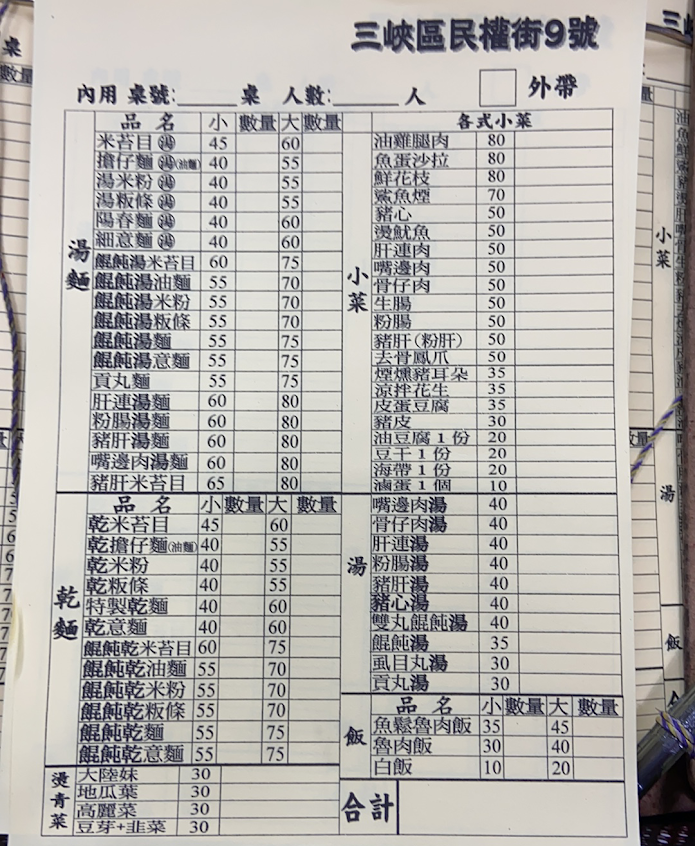 三峽區民權街9號
內用 桌號:_____桌 人數:_____人 □ 外帶
湯麵
品名 小 數量 大 數量
米苔目 湯 45 60
擔仔麵 湯(油麵) 40 55
湯米粉 湯 40 55
湯粄條 湯 40 55
陽春麵 湯 40 60
細意麵 湯 40 60
餛飩湯米苔目 60 75
餛飩湯油麵 55 70
餛飩湯米粉 55 70
餛飩湯粄條 55 70
餛飩湯麵 55 75
餛飩湯意麵 55 75
貢丸麵 55 75
肝連湯麵 60 80
粉腸湯麵 60 80
豬肝湯麵 60 80
嘴邊肉湯麵 60 80
豬肝米苔目 65 80
乾麵
品名 小 數量 大 數量
乾米苔目 45 60
乾擔仔麵(油麵) 40 55
乾米粉 40 55
乾粄條 40 55
特製乾麵 40 60
乾意麵 40 60
餛飩乾米苔目 60 75
餛飩乾油麵 55 70
餛飩乾米粉 55 70
餛飩乾粄條 55 70
餛飩乾麵 55 75
餛飩乾意麵 55 75
燙青菜
大陸妹 30
地瓜葉 30
高麗菜 30
豆芽+韭菜 30
小菜
各式小菜
油雞腿肉 80
魚蛋沙拉 80
鮮花枝 80
鯊魚煙 70
豬心 50
燙魷魚 50
肝連肉 50
嘴邊肉 50
骨仔肉 50
生腸 50
粉腸 50
豬肝(粉肝) 50
去骨鳳爪 50
煙燻豬耳朵 35
涼拌花生 35
皮蛋豆腐 35
豬皮 30
油豆腐1份 20
豆干1份 20
海帶1份 20
滷蛋1個 10
湯
嘴邊肉湯 40
骨仔肉湯 40
肝連湯 40
粉腸湯 40
豬肝湯 40
豬心湯 40
雙丸餛飩湯 40
餛飩湯 35
虱目丸湯 30
貢丸湯 30
飯
品名 小 數量 大 數量
魚鬆魯肉飯 35 45
魯肉飯 30 40
白飯 10 20
合計
桌
數量
小菜
湯
飯